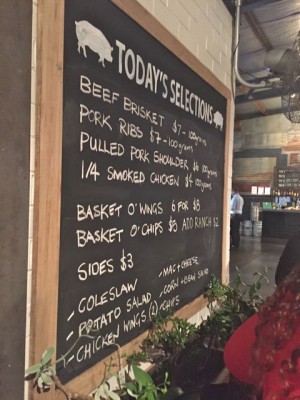 TODAY'S SELECTIONS
BEEF BRISKET $7 - 100grams
PORK RIBS $7 - 100grams
PULLED PORK SHOULDER $6 100grams
1/4 SMOKED CHICKEN $4 100grams
BASKET O'WINGS 6 FOR $8
BASKET O'CHIPS $5 ADD RANCH $2
SIDES $3
- COLESLAW
- POTATO SALAD
- CHICKEN WINGS (2)
- MAC + CHEESE
- CORN + BEAN SALAD
- CHIPS